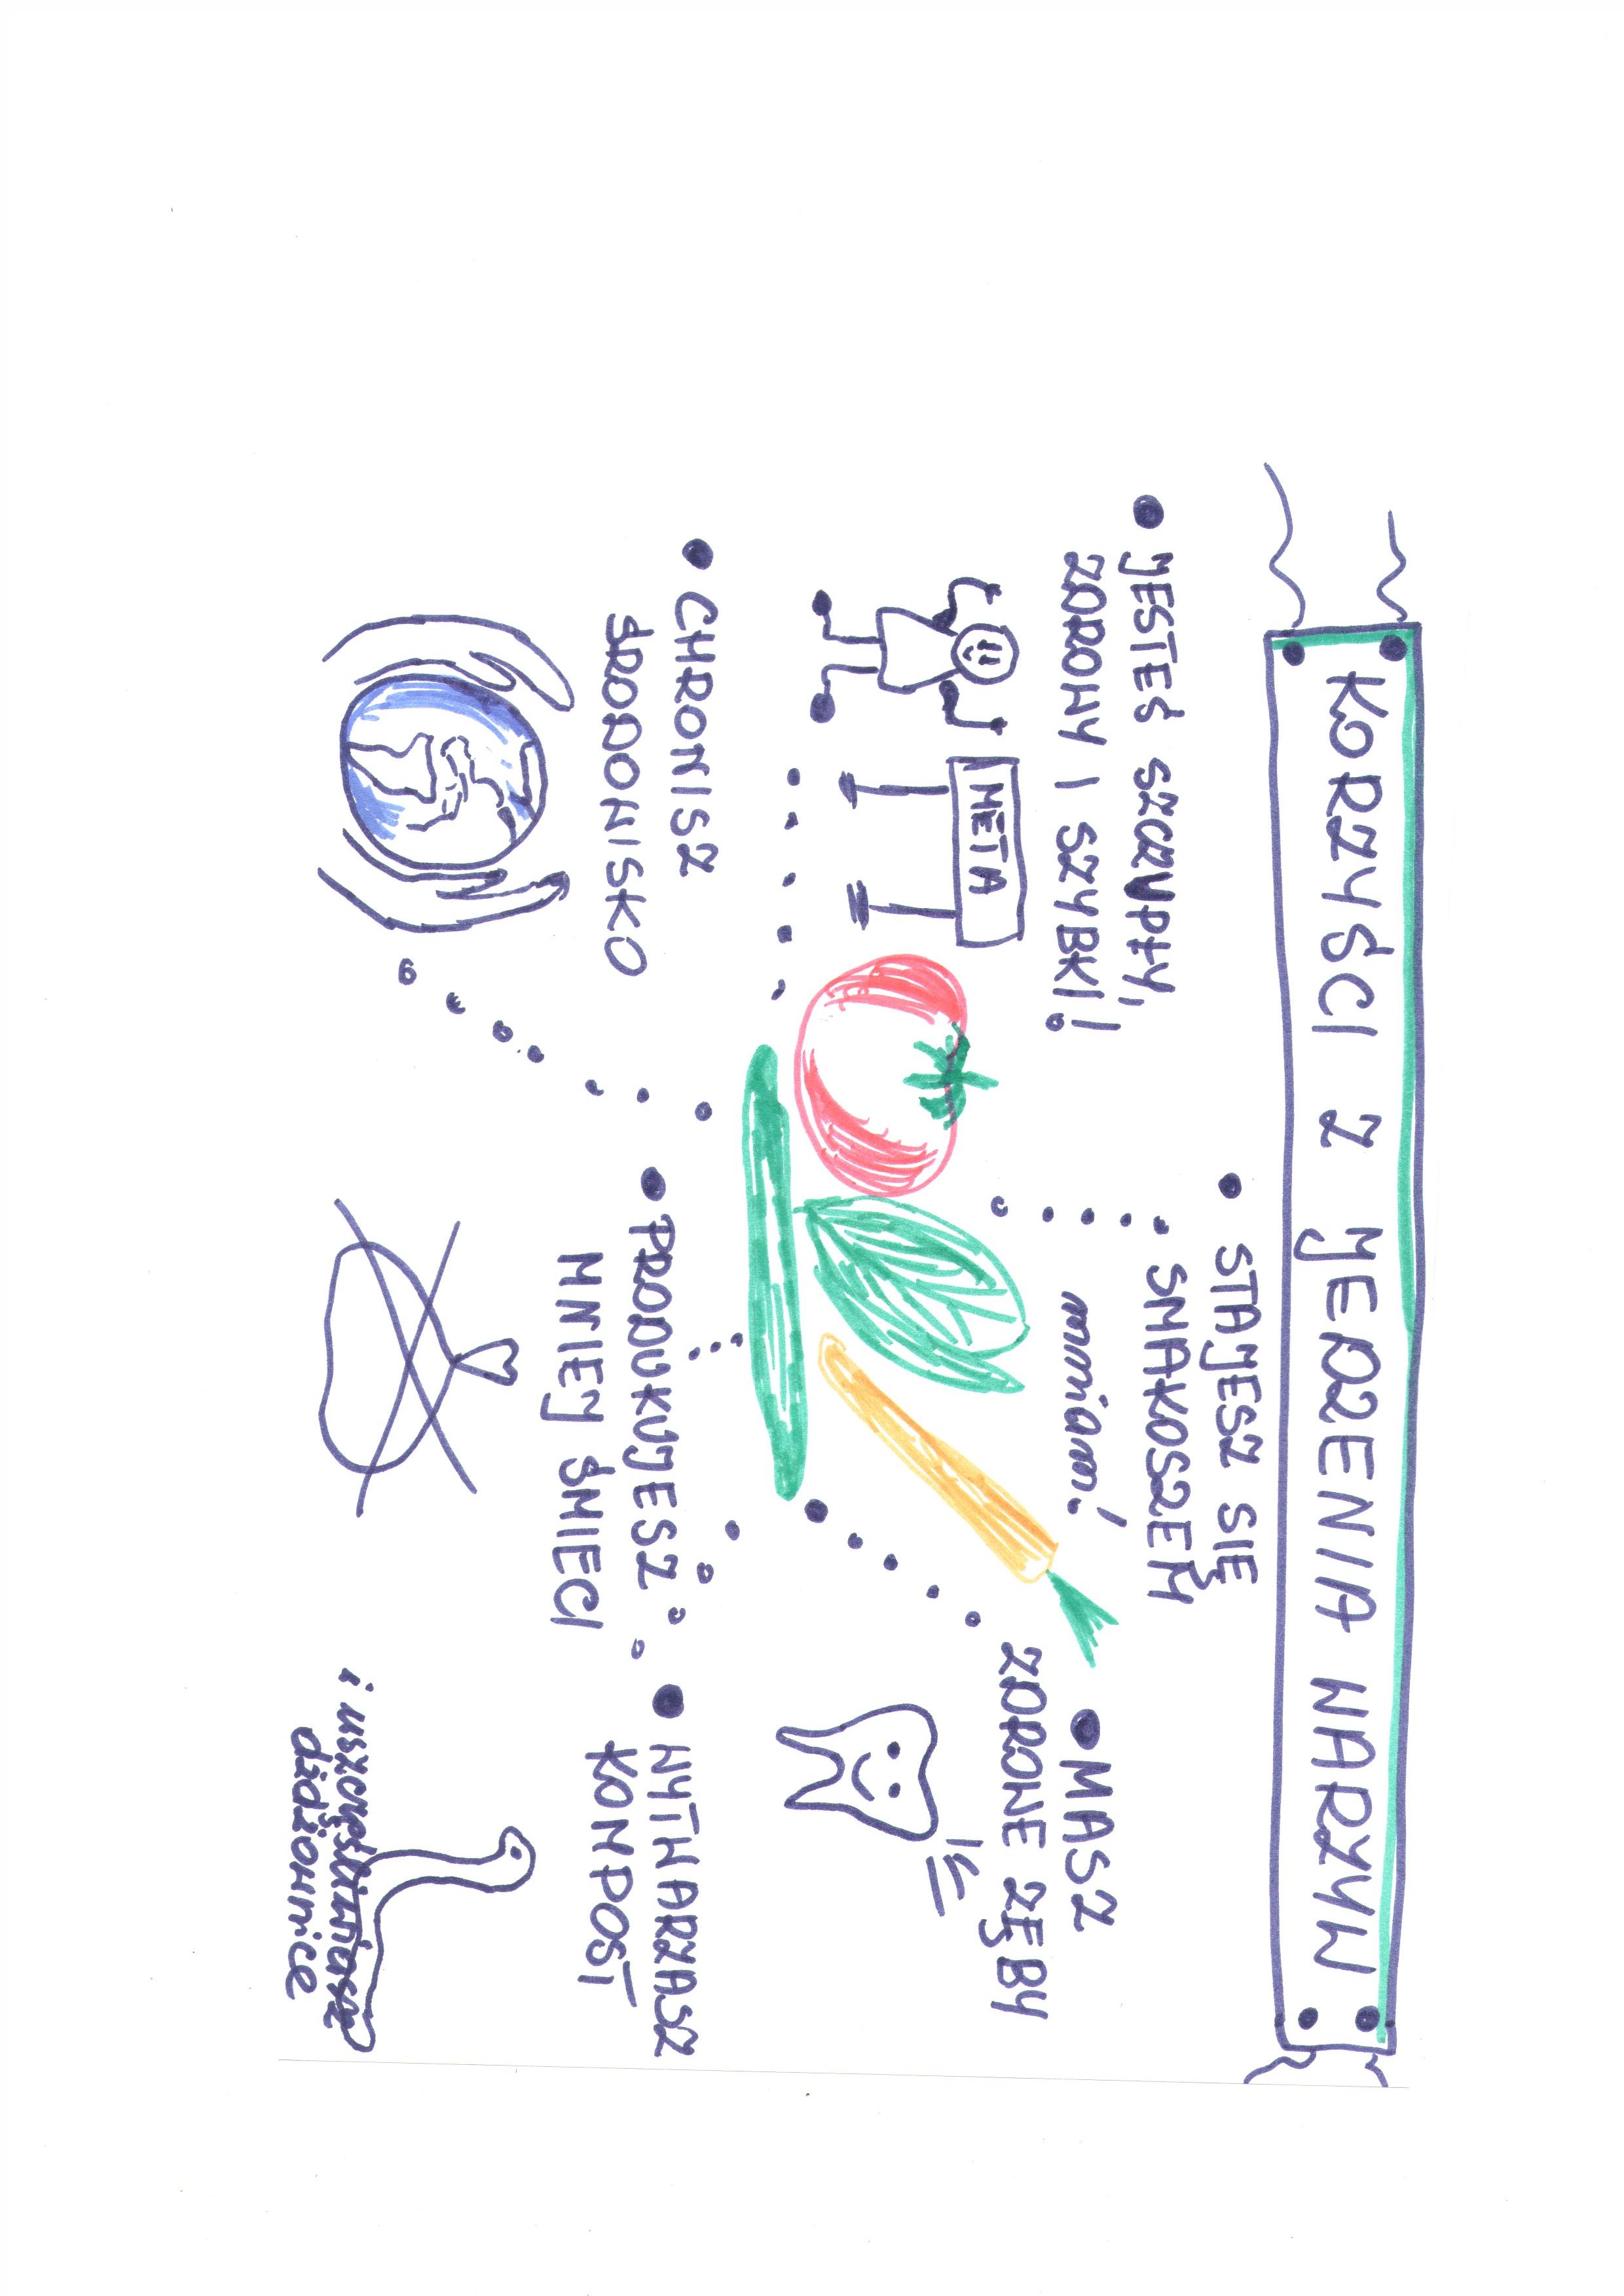 KORZYŚCI Z JEDZENIA WARZYW
• JESTEŚ SZCZUPŁY,
ZDROWY I SZYBKI!
META
• STAJESZ SIĘ
SMAKOSZEM
mmniam!
• MASZ
ZDROWE ZĘBY
• CHRONISZ
ŚRODOWISKO
• PRODUKUJESZ
MNIEJ ŚMIECI
• WYTWARZASZ
KOMPOST
i uszczęśliwiasz
dżdżownice